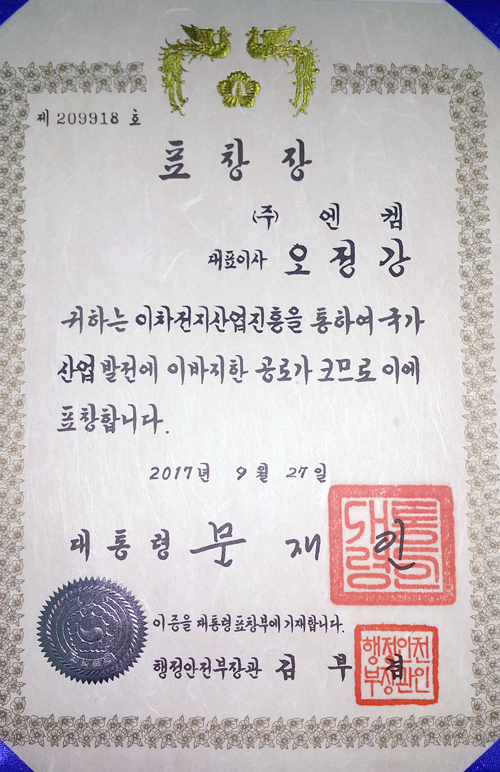 제 209918 호
표 창 장
(주) 엔 켐
대표이사 오 정 강
귀하는 이차전지산업진흥을 통하여 국가
산업 발전에 이바지한 공로가 크므로 이에
표창합니다.
2017년 9월 27일
대 통 령 문 재 인
대통령의인
이 증을 대통령표창부에 기재합니다.
행정안전부장관 김 부 겸
행정안전
부장관인